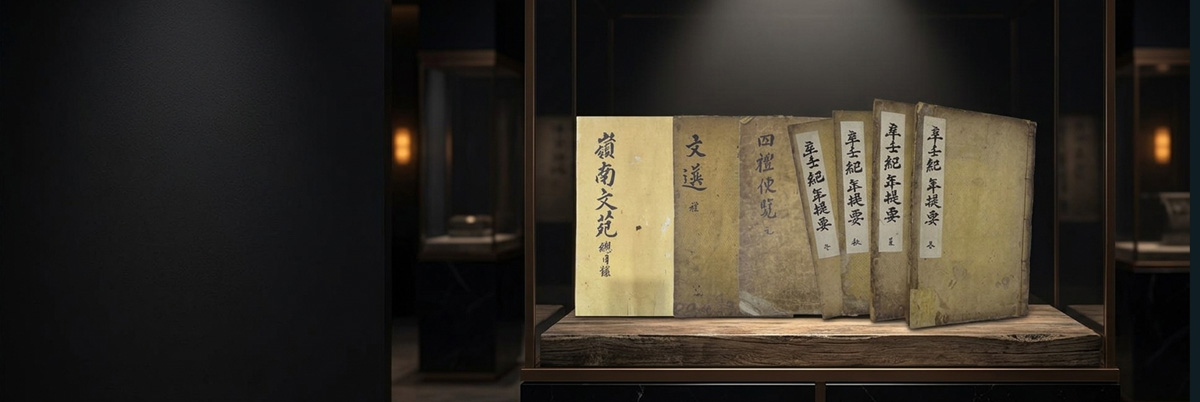 嶺南文苑
總目錄
文選
四禮便覽 元
辛壬紀年提要 冬
辛壬紀年提要 秋
辛壬紀年提要 夏
辛壬紀年提要 春